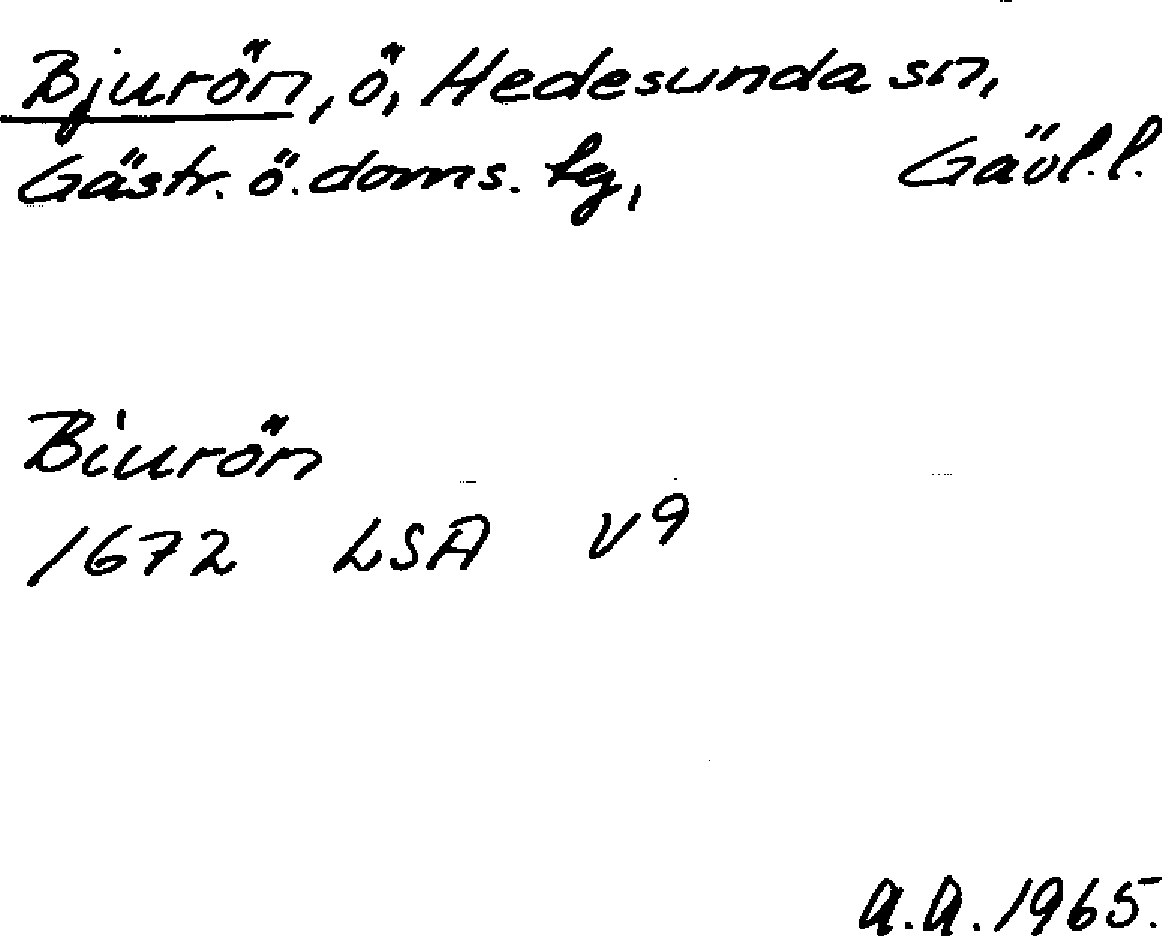 Bjurön, ö, Hedesunda sn,
Gästr. ö. doms. tg, Gävl. l.
Biurön
1672 LSA V9
A.A. 1965.